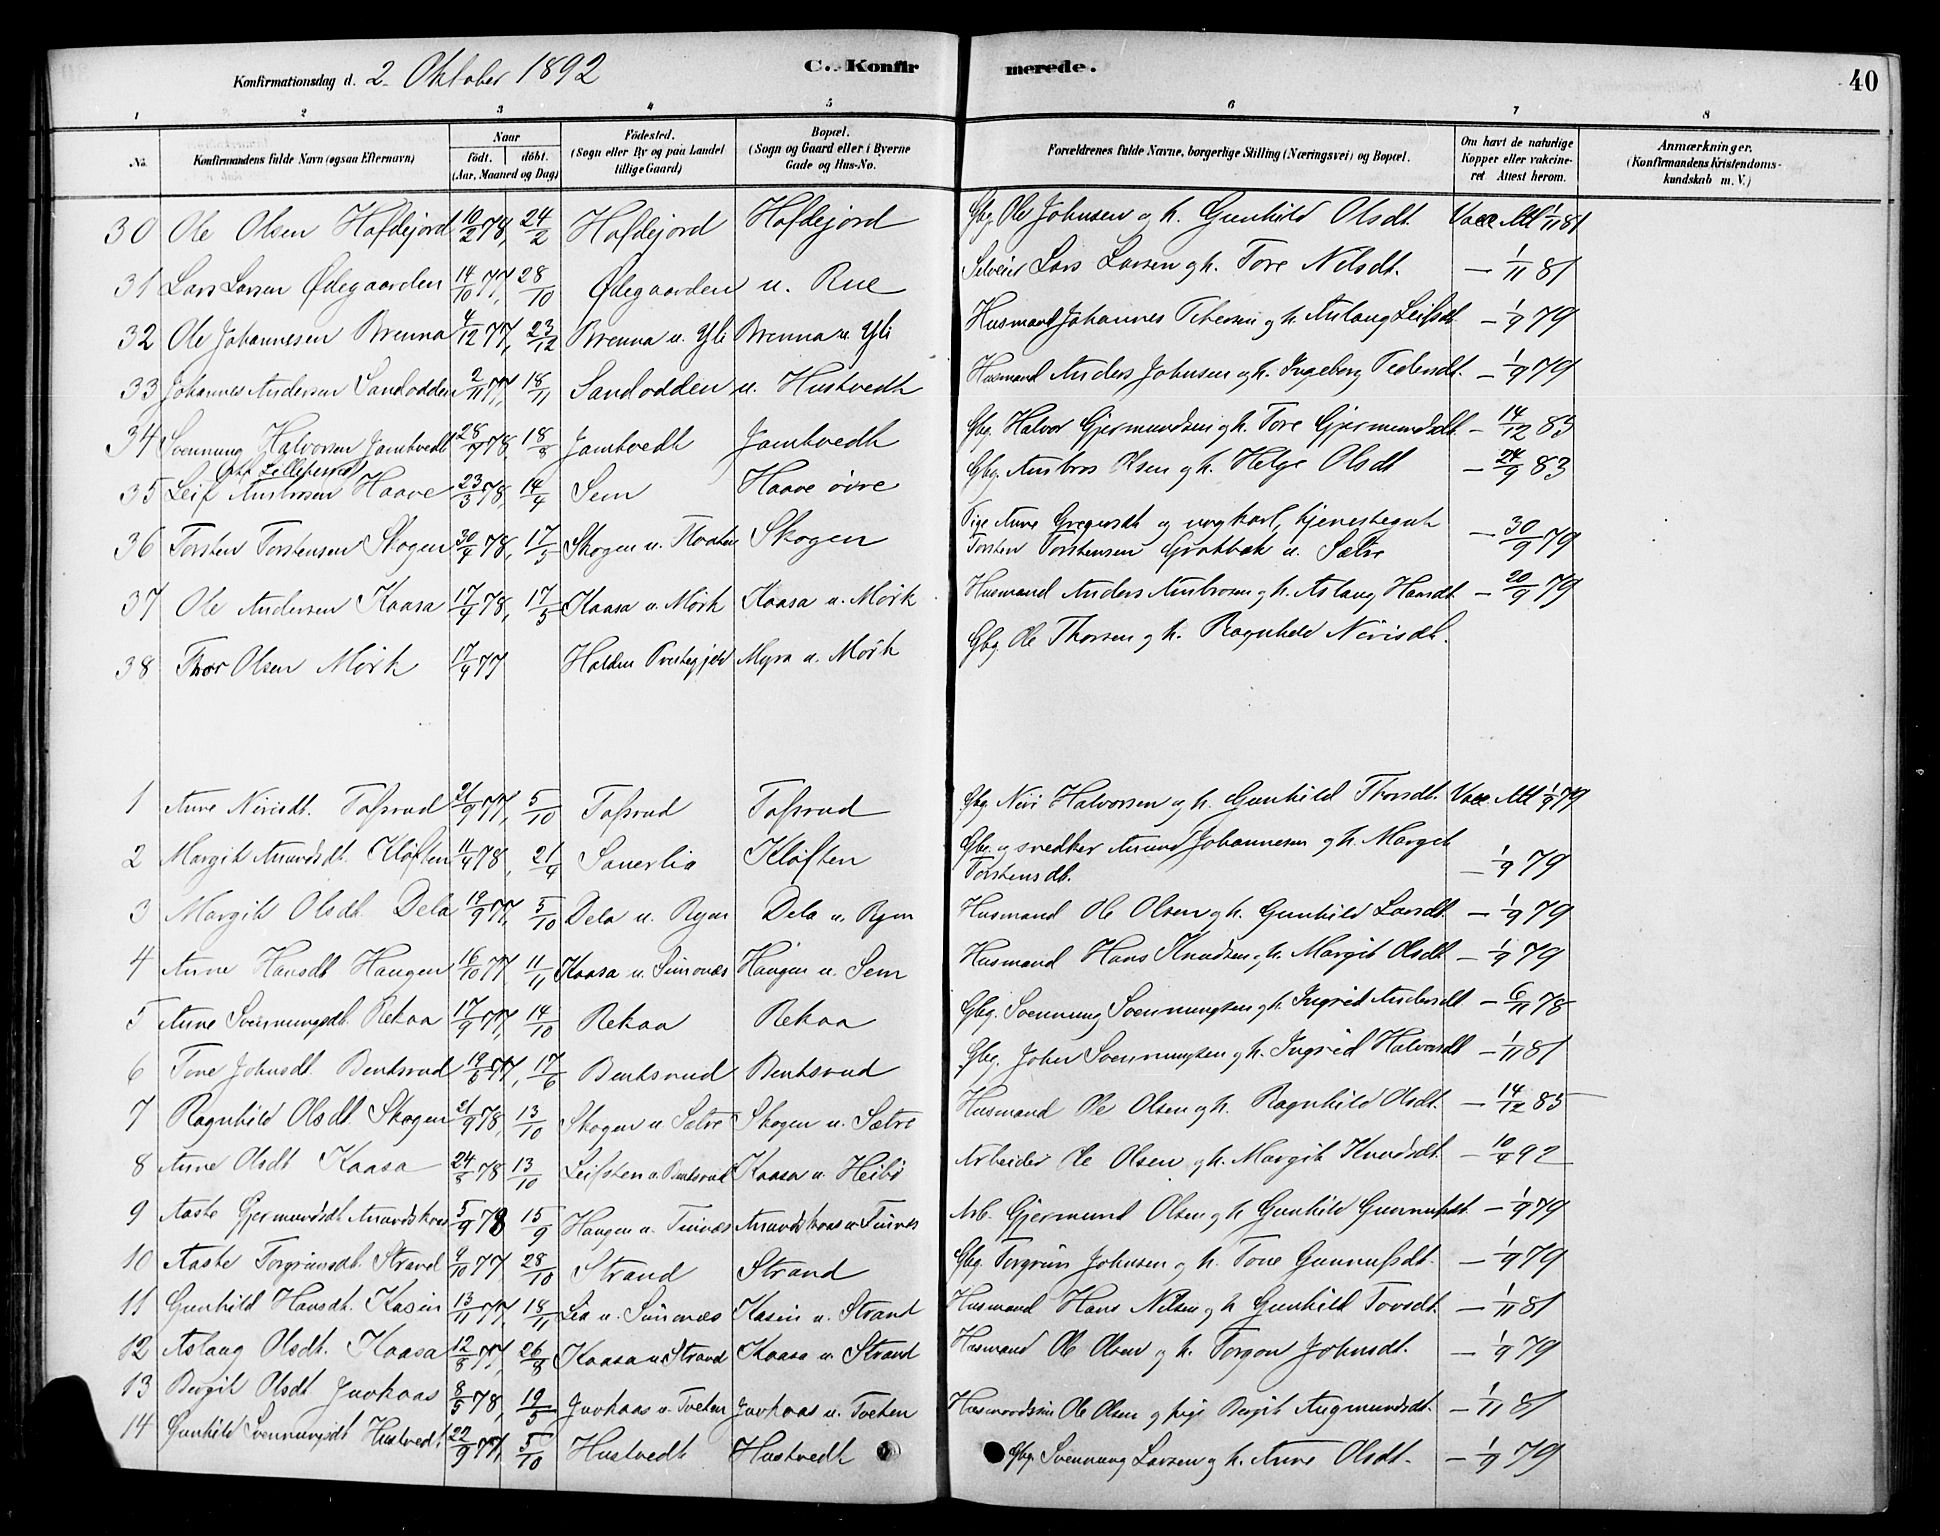 Konfirmationsdag d. 2. Oktober 1892 C. Konfirmerede. 40
1 2 3 4 5 6 7 8
No. Konfirmandens fulde Navn (ogsaa Efternavn) Naar født. døbt. (Aar, Maaned og Dag) Fødested. (Sogn eller By og paa Landet tillige Gaard) Bopæl. (Sogn og Gaard eller i Byerne Gade og Hus-No. Forældrenes fulde Navne, borgerlige Stilling (Næringsvei) og Bopæl. Om havt de naturlige Kopper eller vakcineret Attest herom. Anmærkninger. (Konfirmandens Kristendomskundskab m. V.)
30 Ole Olsen Hafdejord 10/2 78, 24/2 Hafdejord Hafdejord Gbg. Ole Johnsen og h. Gunhild Olsdt. Vacc Att 1/11 81
31 Lars Larsen Ødegaarden 14/10 77, 28/10 Ødegaarden u. Rue Selveier Lars Larsen og h. Tore Nilsdt. — 1/11 81
32 Ole Johannesen Brenna 4/12 77, 23/12 Brenna u. Yli Brenna u. Yli Husmand Johannes og h. Aslaug Leifsdt — 1/9 79
33 Johannes Andersen Sandodden 2/11 77, 18/11 Sandodden u. Hustvedt Husmand Anders Johnsen og h. Ingeborg Pedersdt. — 1/9 79
34 Svennung Halvorsen Jamtvedt 28/7 78, 18/8 Jamtvedt Jamtvedt Gbg. Halvor Gjermundsen og h. Tore Gjermundsdt. — 14/12 83
35 Leif Ambrosen Haave 23/3 78, 14/4 Sem Haave øvre Gbg. Ambros Olsen og h. Helge Olsdt — 24/9 83
36 Torsten Torstensen Skogen 30/4 78, 17/5 Skogen u. Skogen Pige Anne Gregersdt og ungkarl, tjenestegut
Torsten Torstensen Grotbæk u. Sætre — 30/9 79
37 Ole Andersen Kaasa 17/4 78, 17/5 Kaasa u. Mørk Kaasa u. Mørk Husmand Anders Ambrosen og h. Aslaug Hansdt. — 20/9 79
38 Thor Olsen Mørk 17/9 77 Holden Prestegjeld Myra u. Mørk Gbg. Ole Thorsen og h. Ragnhild Nirisdt.
1 Anne Nirisdt. Tofsrud 21/9 77, 5/10 Tofsrud Tofsrud Gbg. Niri Halvorsen og h. Gunhild Thorsdt. Vacc Att 1/9 79
2 Margit Amundsdt. Kløften 11/4 78, 21/4 Sanerlia Kløften Gbr. og snedker Amund Johannesen og h. Margit
Torstensdt. — 1/9 79
3 Margit Olsdt. Dela 19/9 77, 5/10 Dela u. Ryen Dela u. Ryen Husmand Ole Olsen og h. Gunhild Larsdt. — 1/9 79
4 Anne Hansdt Haugen 16/10 77, 11/11 Kaasa u. Haugen u. Sem Husmand Hans Knudsen og h. Margit Olsdt — 1/9 79
5 Anne Svennungsdt. Rekaa 17/9 77, 14/10 Rekaa Rekaa Gbg. Svennung Svennungsen og h. Ingrid Andersdt. — 6/11 78
6 Tone Johnsdt. Bentsrud 19/5 77, 17/6 Bentsrud Bentsrud Gbg. John Svennungsen og h. Ingrid Halvorsdt — 1/11 81
7 Ragnhild Olsdt. Skogen 21/9 78, 13/10 Skogen u. Sætre Skogen u. Sætre Husmand Ole Olsen og h. Ragnhild Olsdt. — 14/12 85
8 Anne Olsdt Kaasa 24/8 78, 13/10 Leifsten u. Bentsrud Kaasa u. Heibø Arbeider Ole Olsen og h. Margit Knudsdt. — 10/4 92
9 Aaste Gjermundsdt. 5/9 78 15/9 Haugen u. Arb. Gjermund Olsen og h. Gunhild — 1/9 79
10 Aaste Torgrimsdt. Strand 4/10 77, 28/10 Strand Strand Gbg. Torgrim Johnsen og h. Tone Gunnufsdt. — 1/9 79
11 Gunhild Hansdt. Kasin 13/11 77, 18/11 Lia u. Kasin u. Strand Husmand Hans Nilsen og h Gunhild Tovsdt. — 1/11 81
12 Aslaug Olsdt. Kaasa 12/8 77, 26/8 Kaasa u. Strand Kaasa u. Strand Husmand Ole Olsen og h. Torgon Johnsdt. — 1/9 79
13 Bergit Olsdt Juvkaas 8/5 78, 19/5 Juvkaas u. Tveten Juvkaas u. Tveten Husmandssøn Ole Olsen og pige Bergit Augmundsdt. — 1/11 81
14 Gunhild Svennungsdt Hustvedt 22/9 77, 5/10 Hustvedt Hustvedt Gbg. Svennung Larsen og h. Anne Olsdt. — 1/9 79